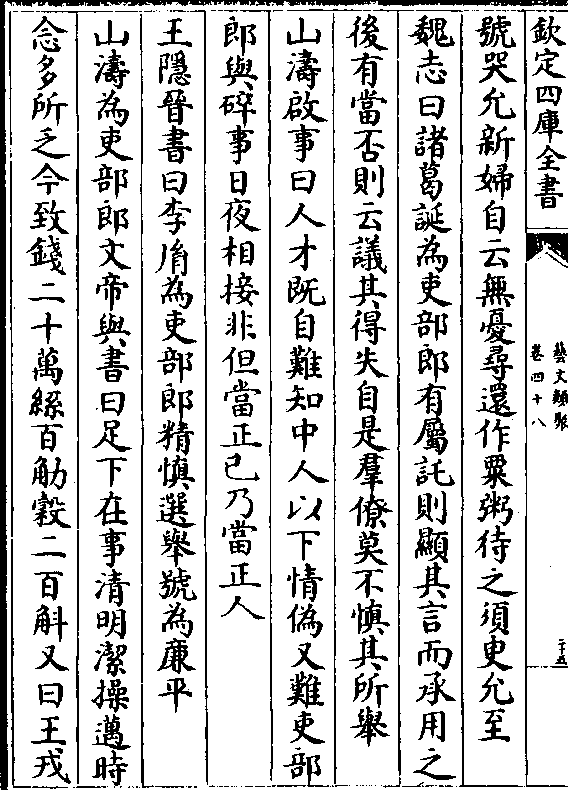 欽定四庫全書
藝文類聚
卷四十八
二十五
號哭允新婦自云無憂尋還作粟粥待之須吏允至
魏志曰諸葛誕為吏部郎有屬託則顯其言而承用之
後有當否則云議其得失自是羣僚莫不慎其所舉
山濤啟事曰人才既自難知中人以下情偽又難吏部
郎與碎事日夜相接非但當正己乃當正人
王隱晉書曰李胤為吏部郎精慎選舉號為廉平
山濤為吏部郎文帝與書曰足下在事清明潔操邁時
念多所乏今致錢二十萬絲百觔穀二百斛又曰王戎